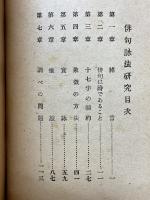 俳句詠法研究目次
第一章 緒言 一
第二章 俳句は詩であること 七
第三章 十七字の制約 二七
第四章 象徴の方法 四一
第五章 實詠 五九
第六章 推設 八七
第七章 調べの問題 一一三